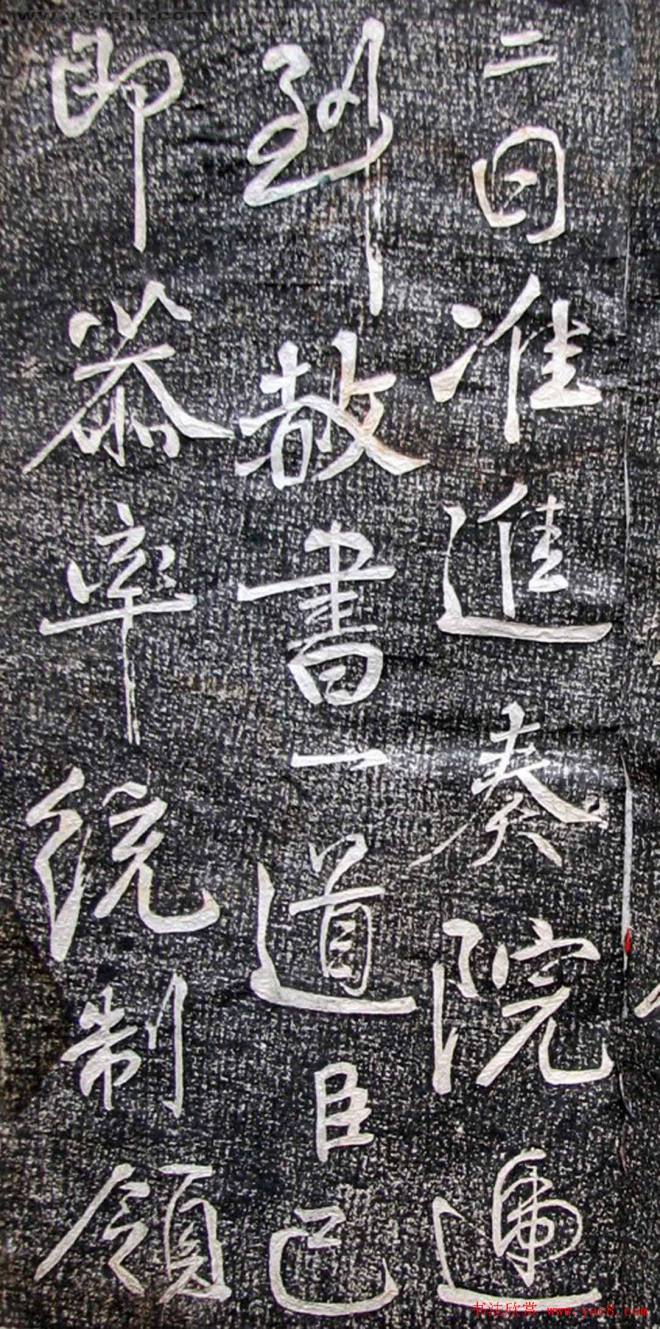 二日准進奏院逓
到赦書一道臣已
即恭率統制領
书法欣赏 www.yac8.com